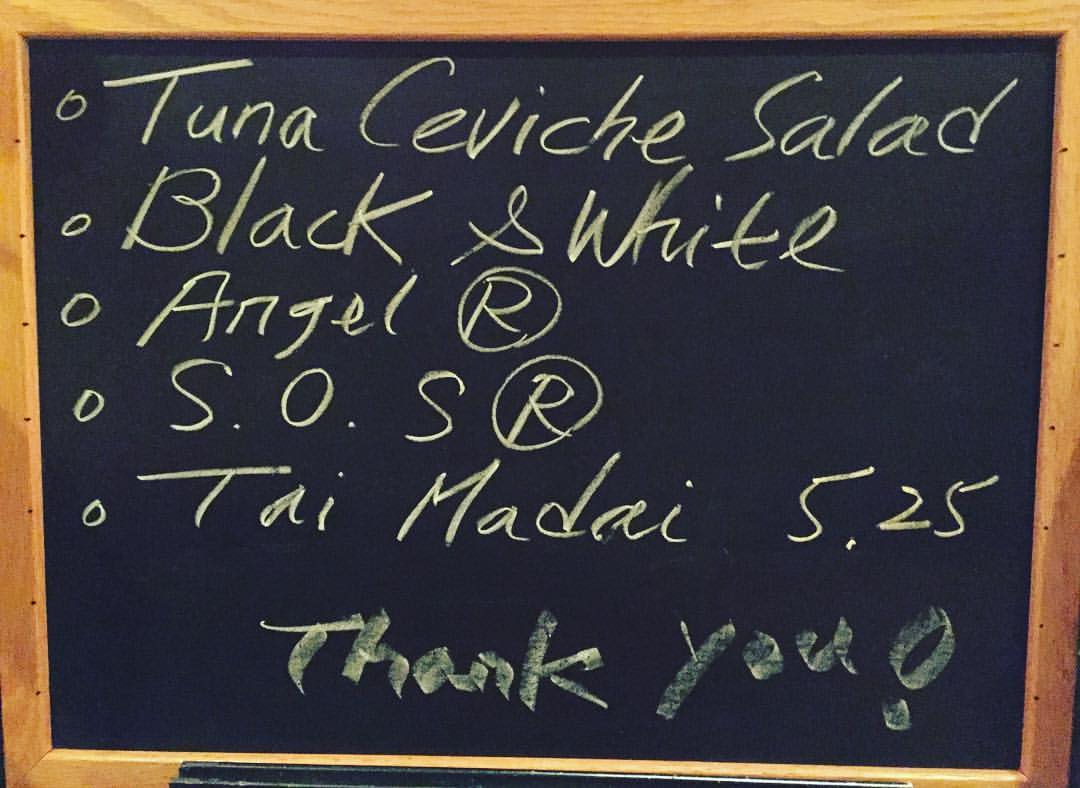 o Tuna Ceviche Salad
o Black & White
o Angel Ⓡ
o S.O.S Ⓡ
o Tai Madai 5.25
Thank you!